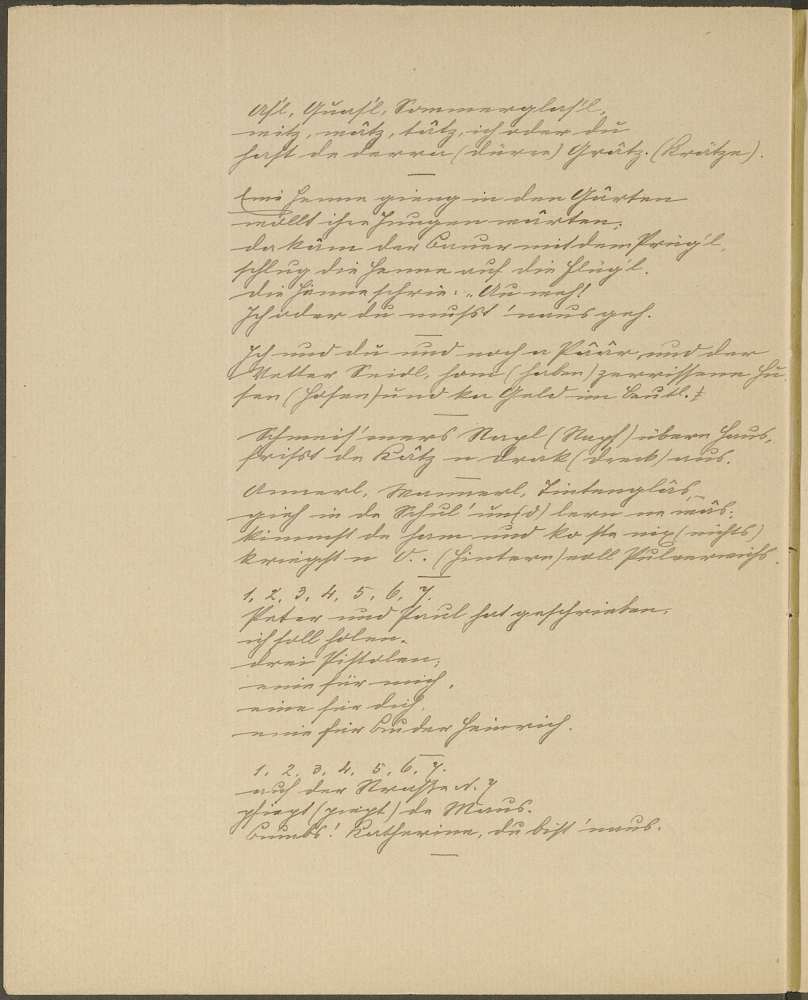 Aßl, Quaßl, Sommerglaßl,
mitz, mâtz, tâtz, ich oder du
hast de derra (dürre) Grâtz. (Krätze).
Eine Henne gieng in den Gärten
wöllt ihre Jungen wärten,
da käm der Bauer mit dem Prüg'l,
schlug die Henne auf die Flüg'l.
die Hänne schrie: „Au weh!
Ich oder du mußt 'naus geh.
Ich und du und noch a Pâär, und der
Vetter Seidl, hom (haben) zerrissene Hu-
sen (Hosen) und ka Geld im Beutl.
Schmeiß' mers Napl (Napf) übern Haus,
frißt de Kâtz n Drak (Dreck) aus.
Annerl, Wannerl, Tintenglâs,
gieh in de Schul' un(d) lern na wâs;
kimmst de ham und ko sta nix (nichts)
kriegst n O.. (Hintern) voll Pulverwichs.
1, 2, 3, 4, 5, 6, 7.
Peter und Paul hat geschrieben,
ich soll holen,
drei Pistolen,
eine für mich,
eine für dich,
eine für Bruder Heinrich.
1, 2, 3, 4, 5, 6, 7.
auf der Straße N. 7
pfiept (piept) de Maus.
Bumbs! Katherine, du bist 'naus.